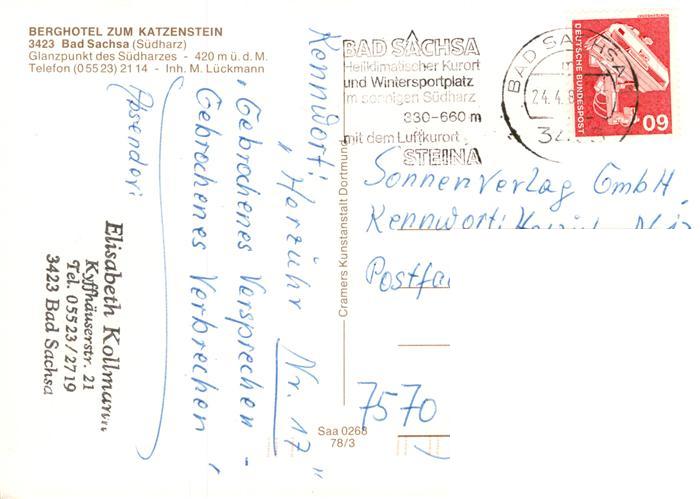 BERGHOTEL ZUM KATZENSTEIN
3423 Bad Sachsa (Südharz)
Glanzpunkt des Südharzes - 420 m ü. d. M.
Telefon (05523) 21 14 - Inh. M. Lückmann
Kennwort:
„Harzuhr Nr. 17"
„Gebrochenes Versprechen -
Gebrochenes Verbrechen"
Absender:
Elisabeth Kollmann
Kyffhäuserstr. 21
Tel. 05523/2719
3423 Bad Sachsa
Cramers Kunstanstalt Dortmund
Saa 0268
78/3
BAD SACHSA
Heilklimatischer Kurort
und Wintersportplatz
im sonnigen Südharz
330-660 m
mit dem Luftkurort
STEINA
BAD SACHSA
24.4.8
DEUTSCHE BUNDESPOST
60
Sonnenverlag GmbH,
Kennwort:
Postfa
7570